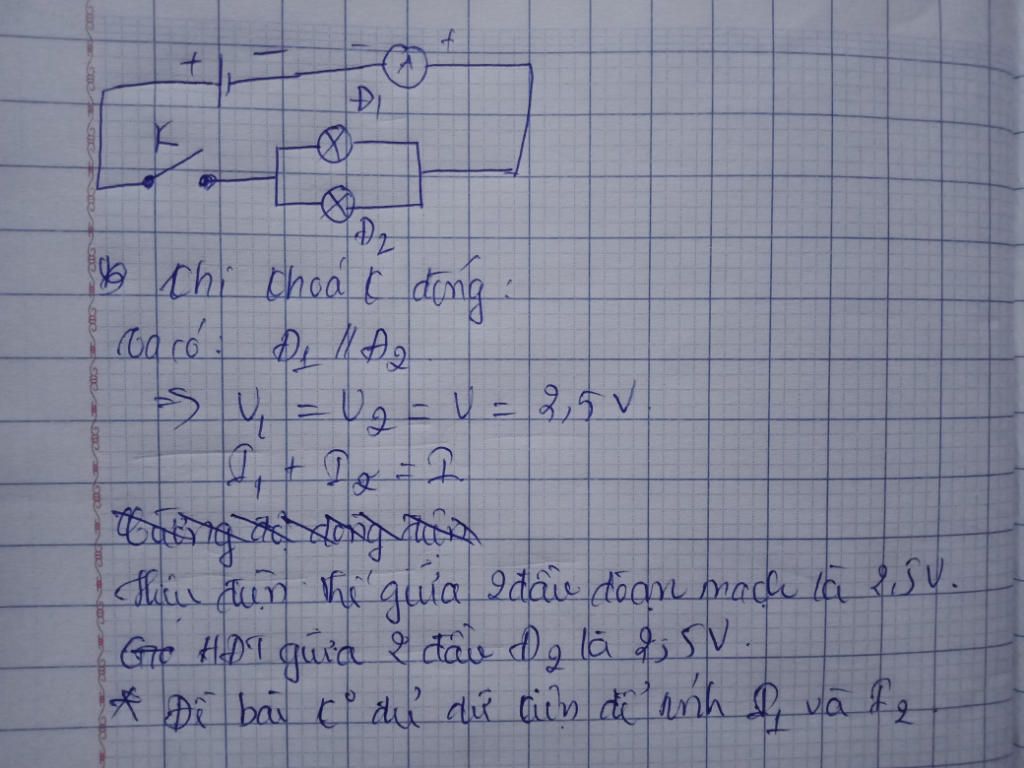 + − − + A
Đ1
K
Đ2
b Khi khoá K đóng:
Ta có: Đ1 // Đ2
⇒ U1 = U2 = U = 2,5V
I1 + I2 = I
Cường độ dòng điện
Hiệu điện thế giữa 2 đầu đoạn mạch là 2,5V.
HĐT giữa 2 đầu Đ2 là 2,5V.
* Đề bài k° đủ dữ kiện để tính I1 và I2